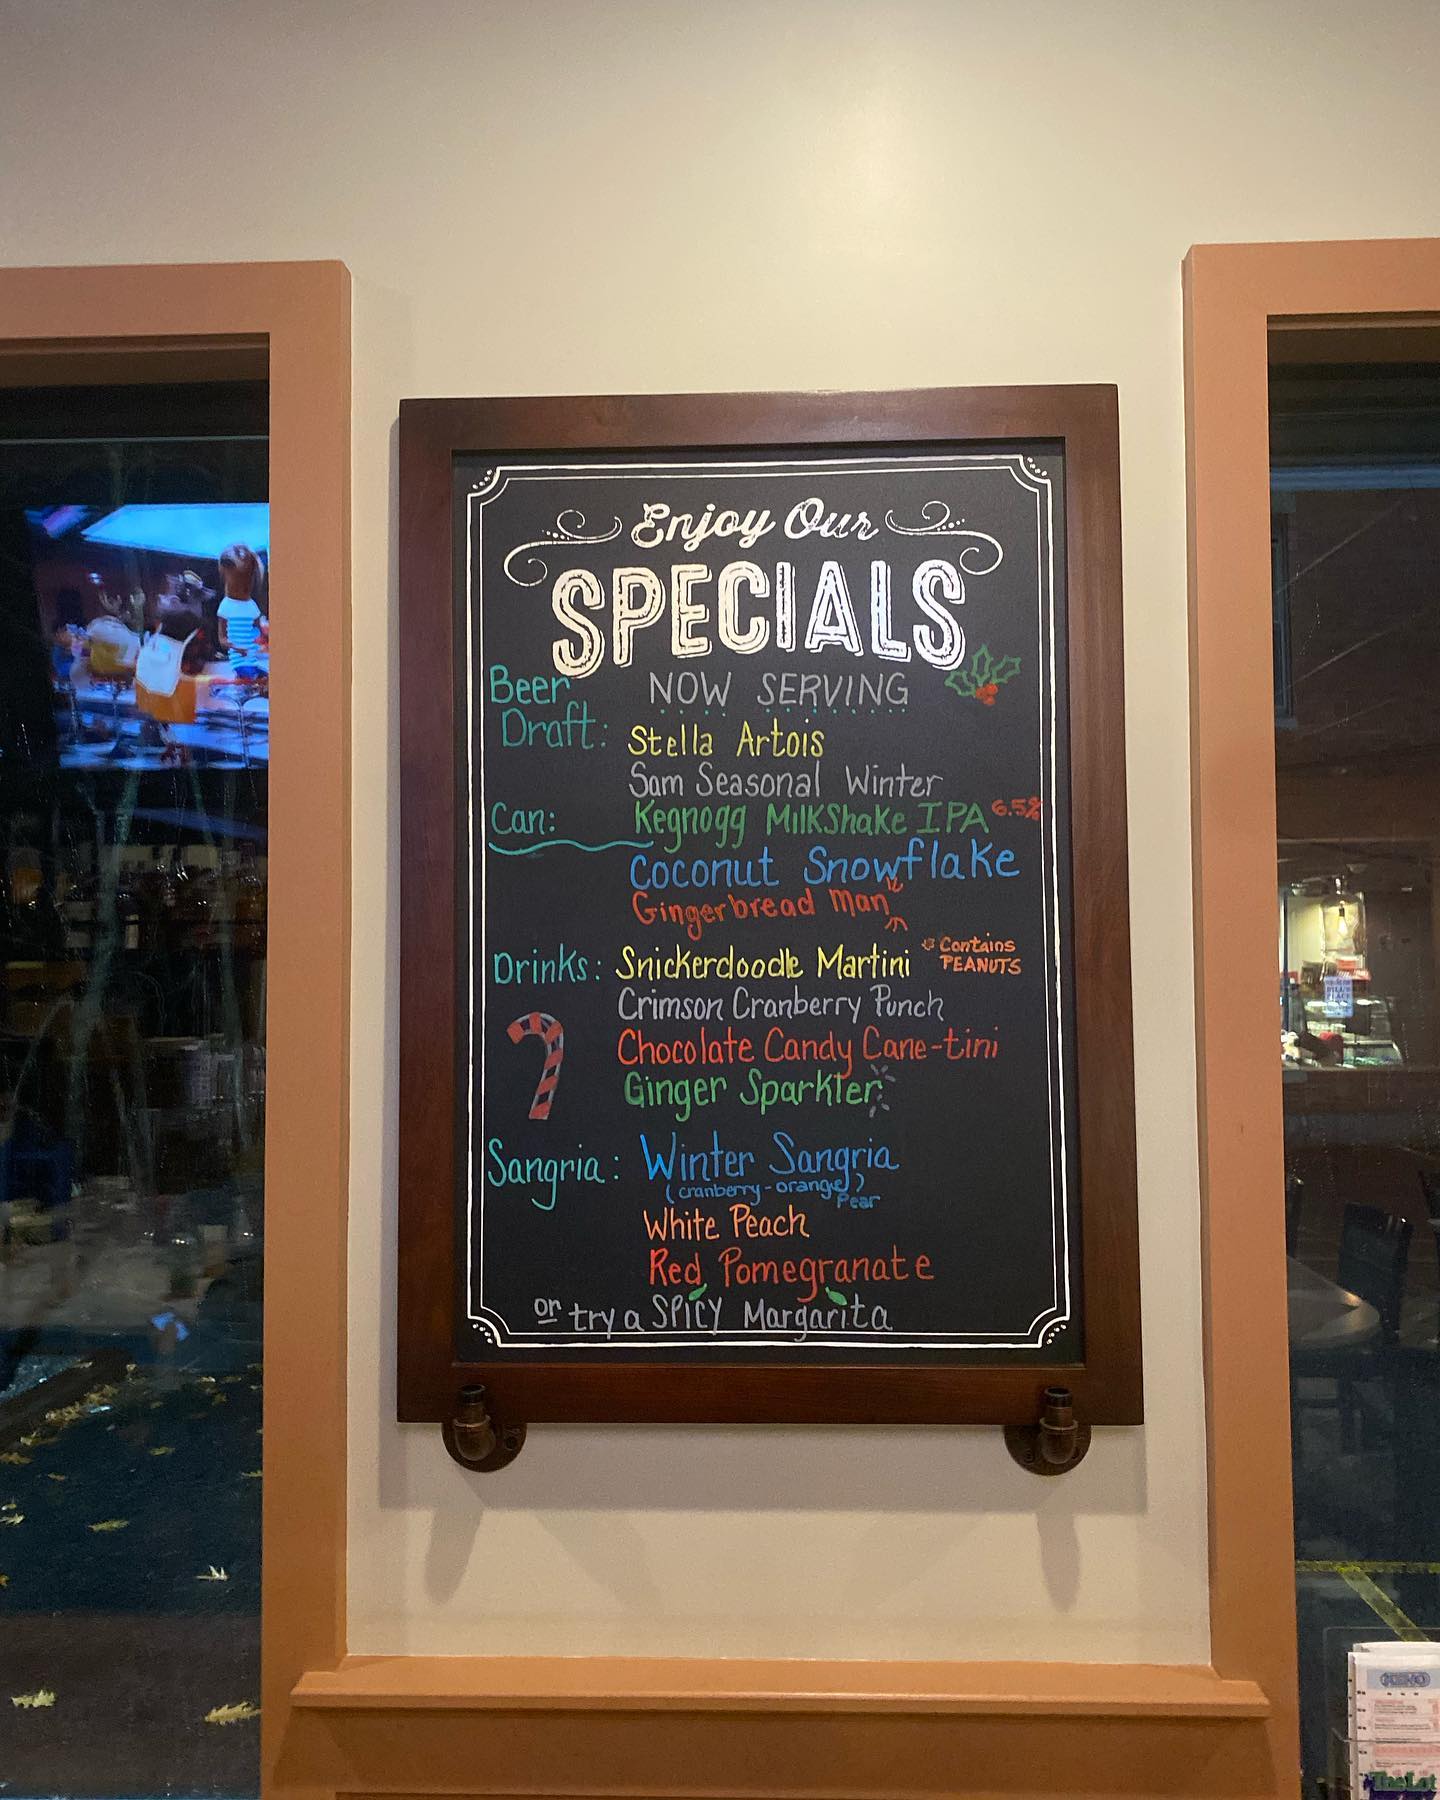 Enjoy Our
SPECIALS
Beer NOW SERVING
Draft: Stella Artois
Sam Seasonal Winter
Can: Kegnogg MilkShake IPA 6.5%
Coconut Snowflake
Gingerbread Man
Drinks: Snickerdoodle Martini Contains
PEANUTS
Crimson Cranberry Punch
Chocolate Candy Cane-tini
Ginger Sparkler
Sangria: Winter Sangria
(cranberry-orange)
Pear
White Peach
Red Pomegranate
or try a SPICY Margarita
KENO
The Lot